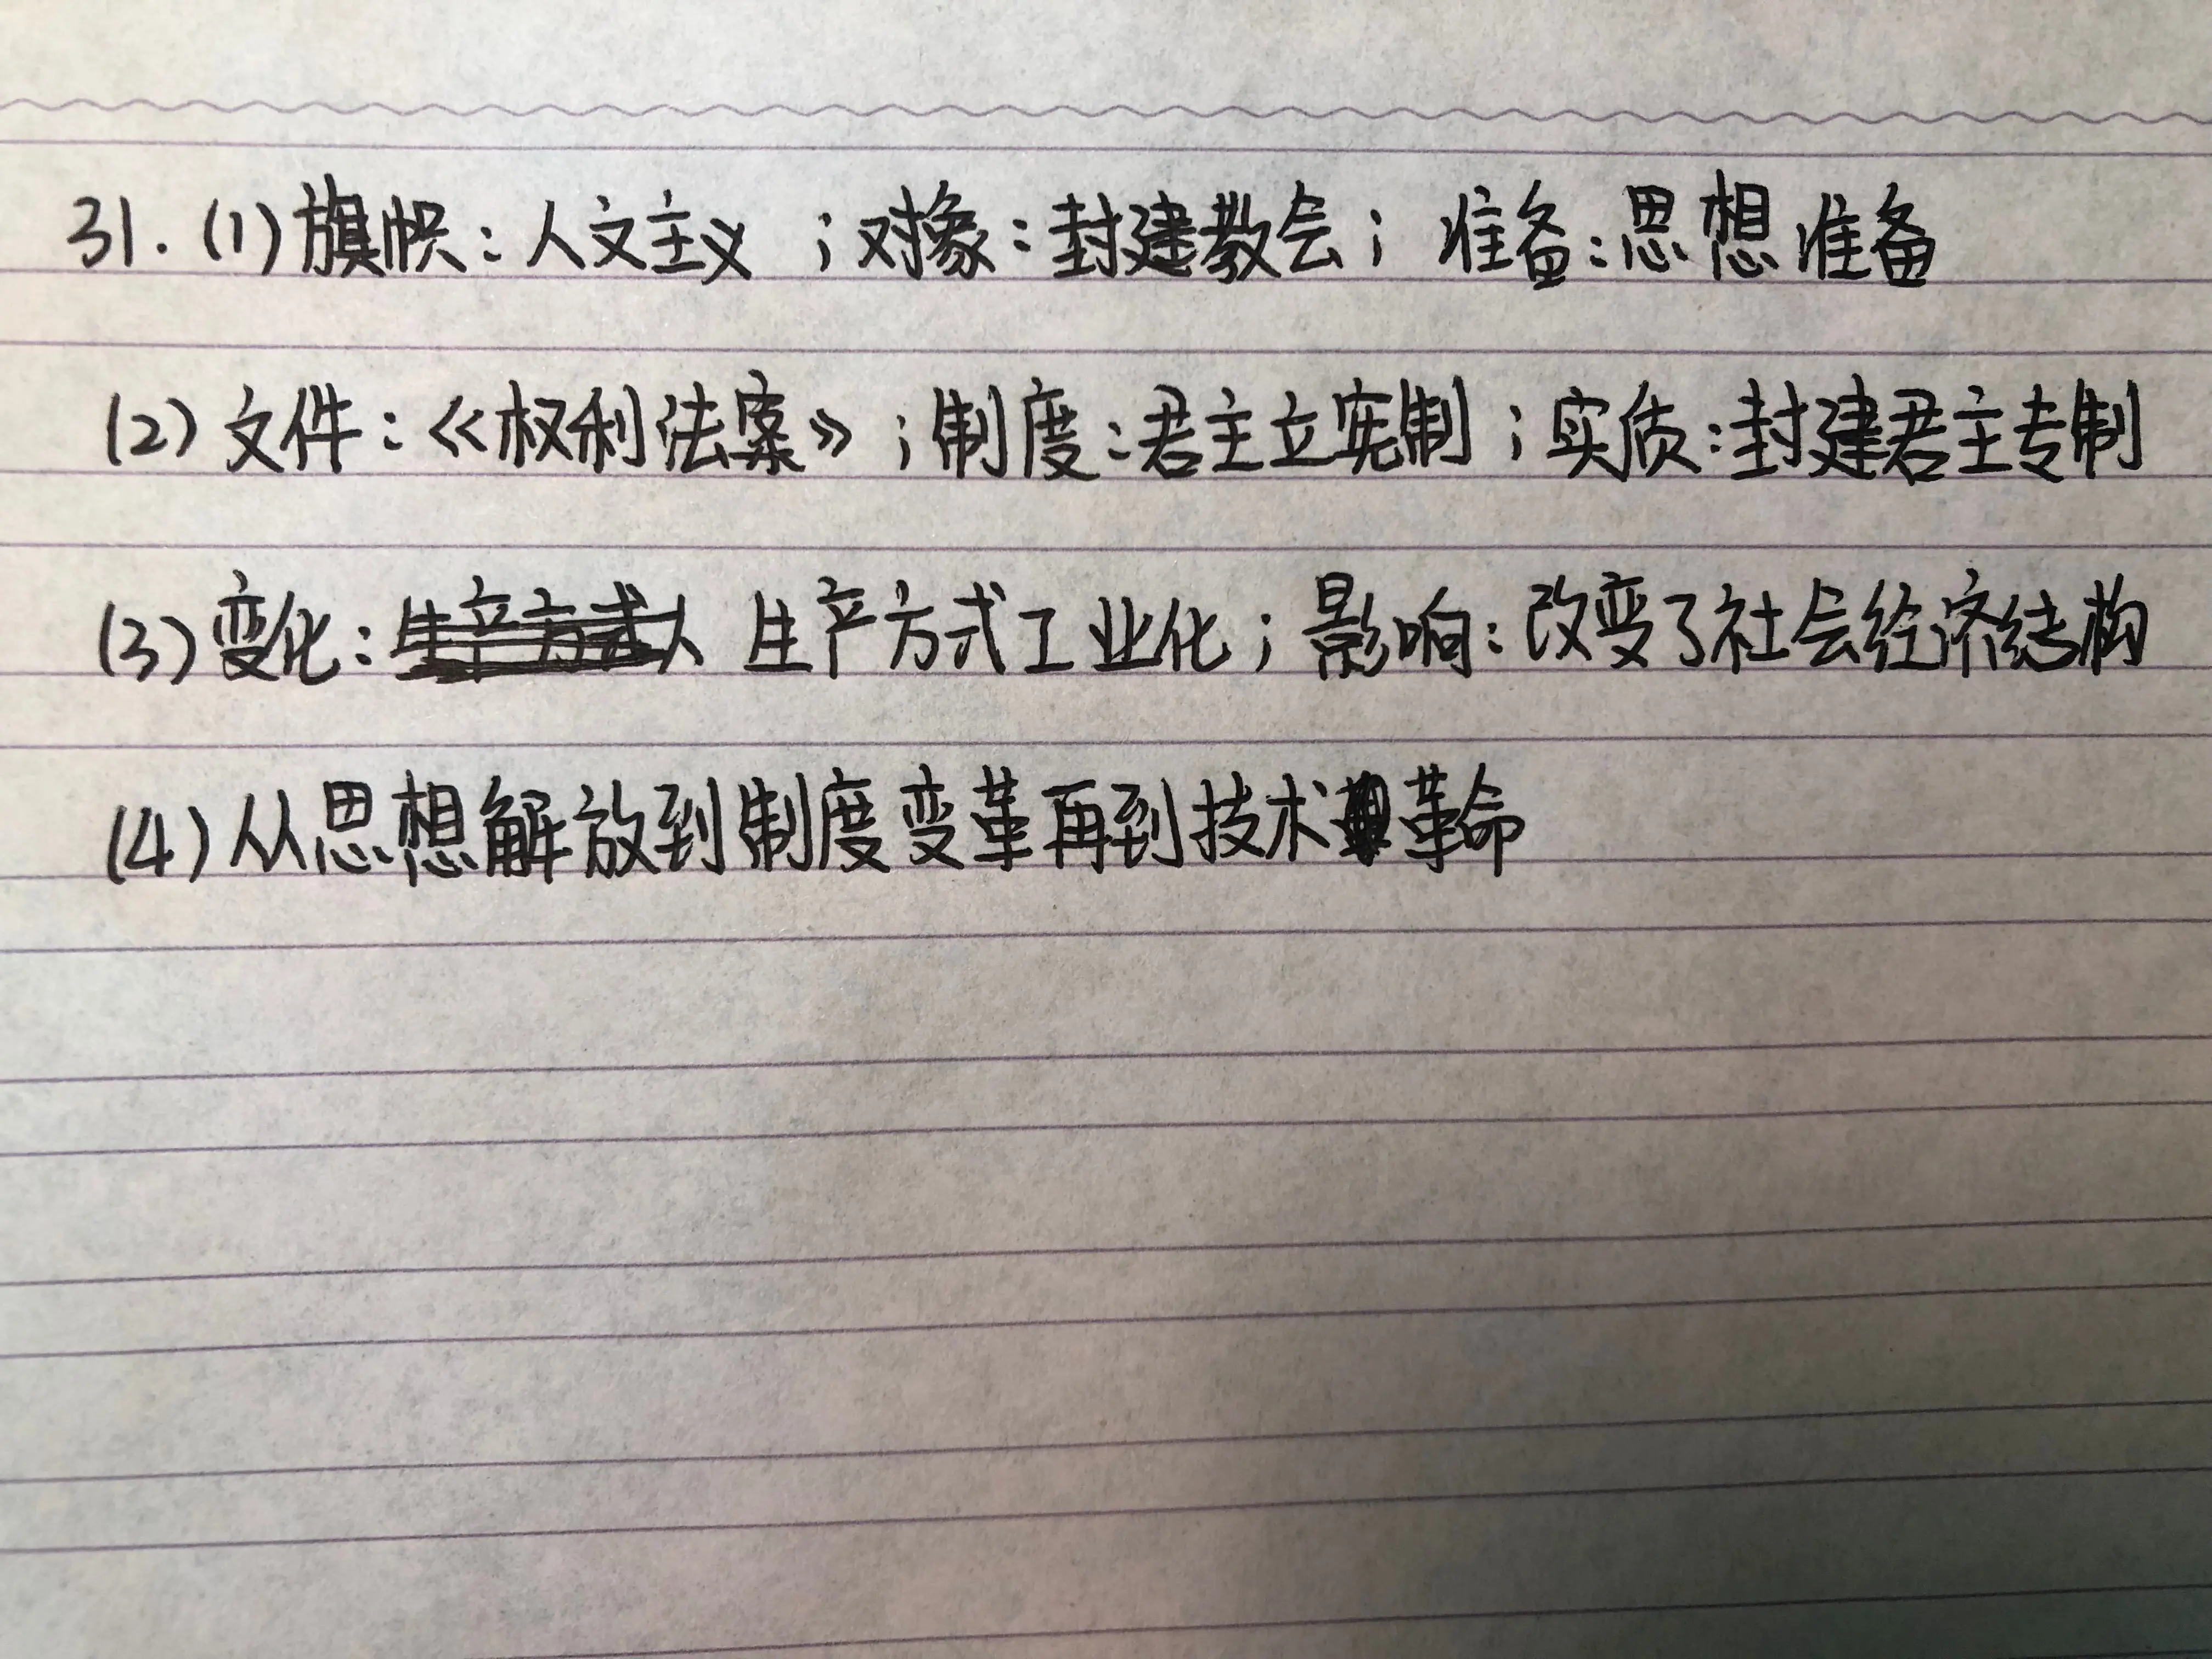 31.(1)旗帜:人文主义;对象:封建教会;准备:思想准备
(2)文件:《权利法案》;制度:君主立宪制;实质:封建君主专制
(3)变化:生产方式工业化;影响:改变了社会经济结构
(4)从思想解放到制度变革再到技术革命